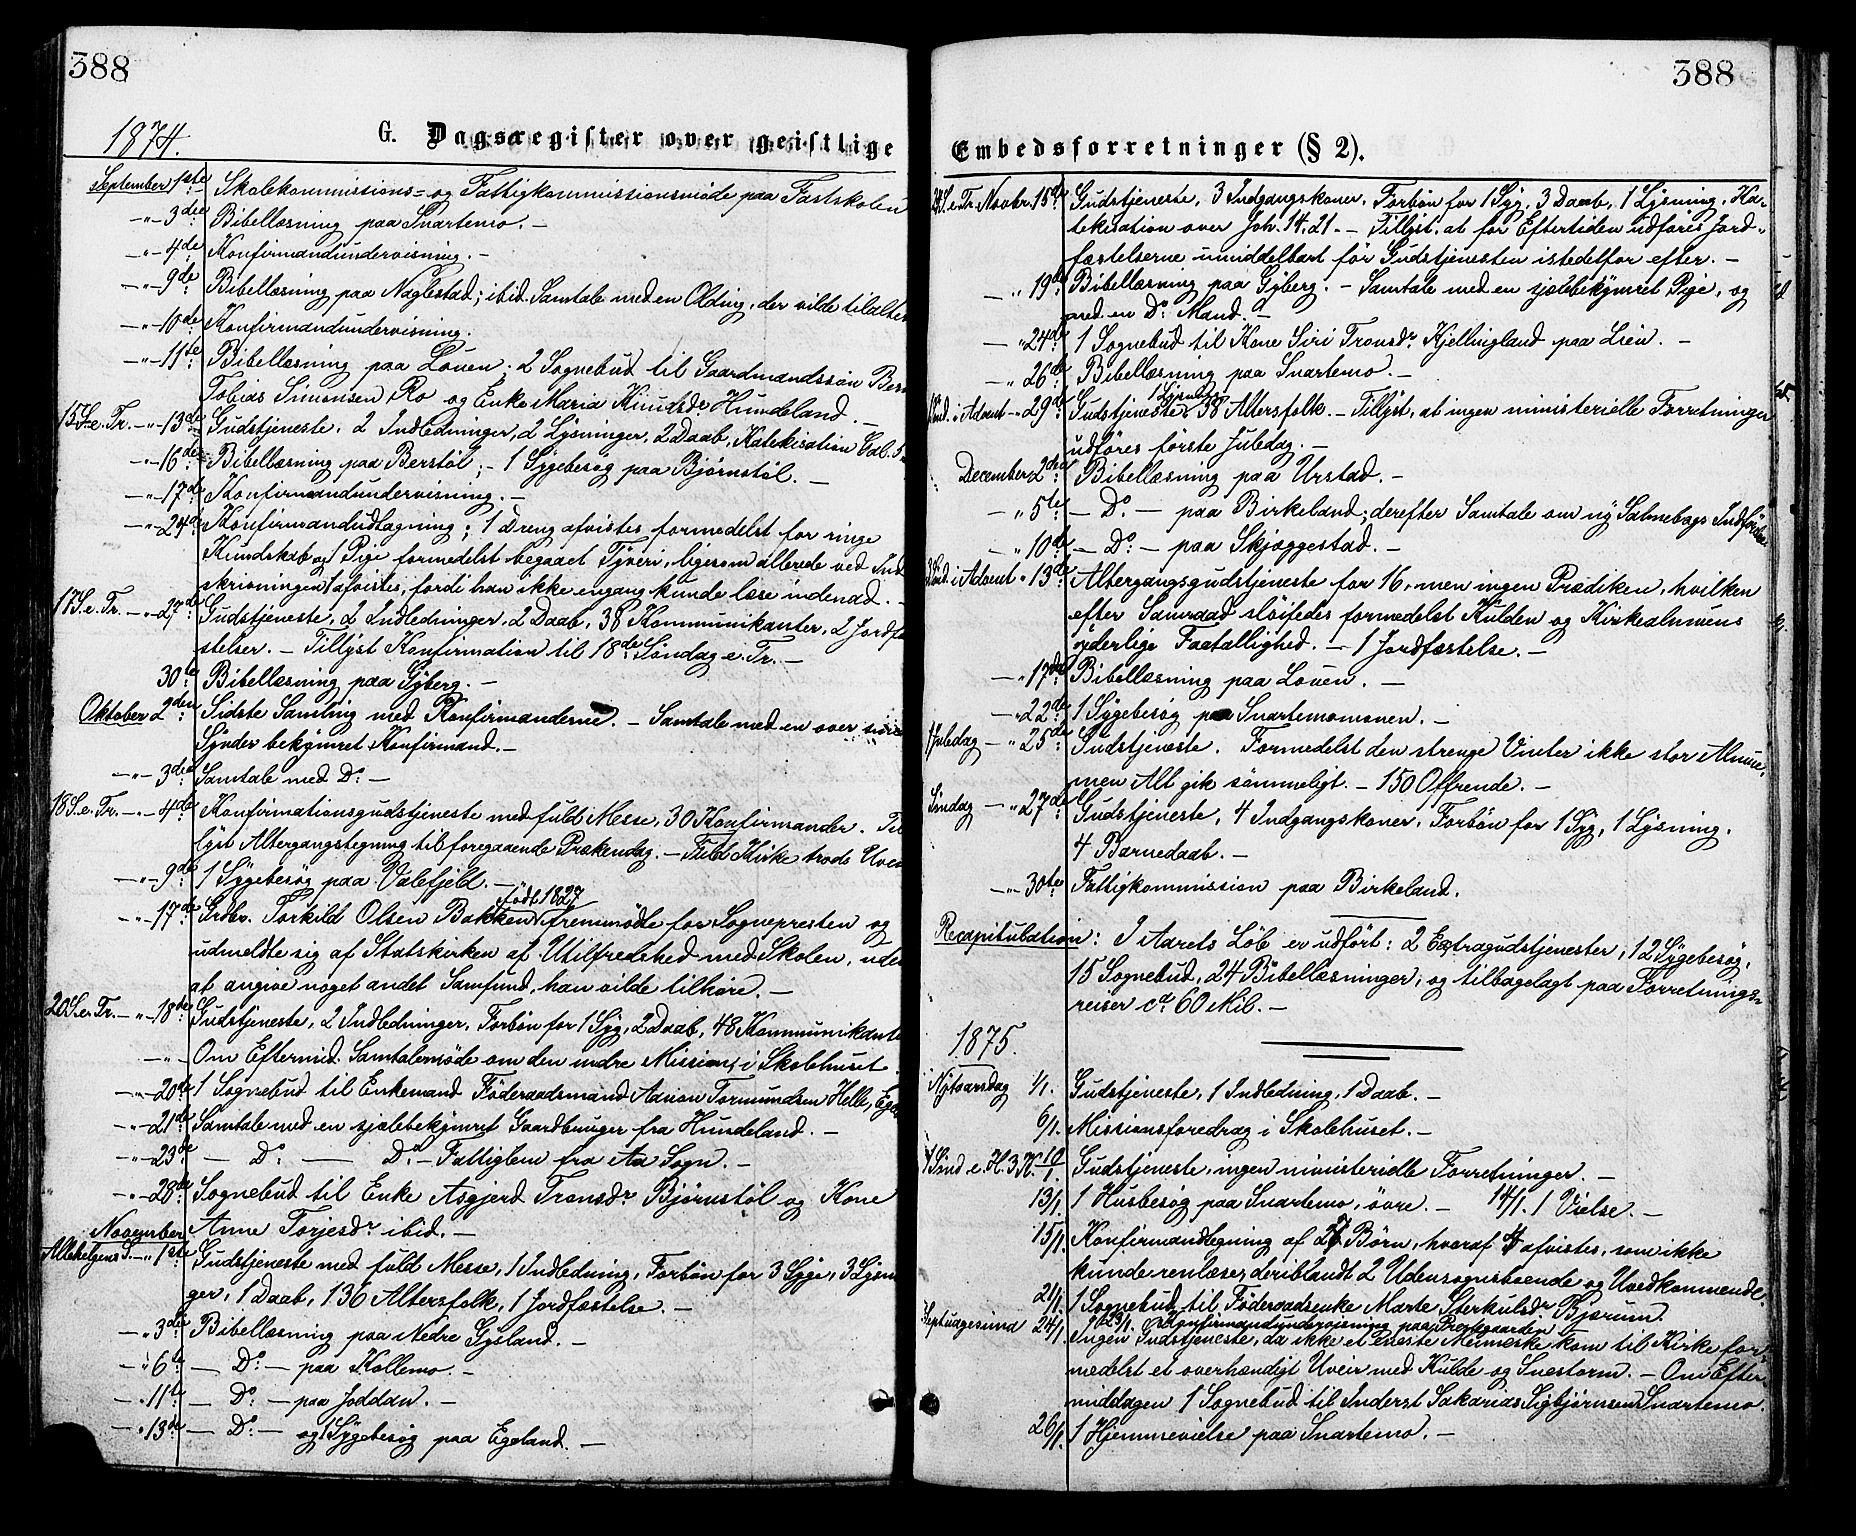 388
1874.
G. Dagsregister over geistlige
September 1ste Skolekommissions- og Fattigkommissionsmøde paa Fastskolen
-"- 3die Bibellæsning paa Snartemo. -
-"- 4de Konfirmandundervisning. -
-"- 9de Bibellæsning paa Naglestad; ibid. Samtale med en Olding, der vilde tilalters
-"- 10de Konfirmandundervisning.
-"- 11te Bibellæsning paa Louen; 2 Sognebud til Gaardmandssøn
Tobias Simonsen Ro og Enke Maria Knudsdr Hundeland. -
15 S. e. Tr. -"- 13de Gudstjeneste, 2 Indledninger, 2 Lysninger, 2 Daab, Katekisation Gal. 5
-"- 16de Bibellæsning paa Berstøl; - 1 Sygebesøg paa Bjørnstøl. -
-"- 17de Konfirmandundervisning. -
-"- 24de Konfirmandudtagning; 1 Dreng afvistes formedelst for ringe
Kundskab og 1 Pige formedelst begaaet Tyveri, ligesom allerede ved Ind-
skrivningen 1 afvistes, fordi han ikke engang kunde læse indenad. -
17 S. e. Tr. -"- 27de Gudstjeneste, 2 Indledninger, 2 Daab, 38 Kommunikanter, 2 Jordfæ
stelser. - Tillyst Konfirmation til 18de Søndag e. Tr. -
30te Bibellæsning paa Gyberg. -
Oktober 2den Sidste Samling med Konfirmanderne. - Samtale med en over sine
Synder bekymret Konfirmand. -
-"- 3die Samtale med Do -
18 S. e. Tr. -"- 4de Konfirmationsgudstjeneste med fuld Messe, 30 Konfirmander. Til
lyst Altergangstegning til foregaaende Prækendag. - Fuld Kirke trods Uveir
-"- 9de 1 Sygebesøg paa Valefjeld. -
født 1827
-"- 17de Grdbr. Torkild Olsen Bakken fremmødte for Sognepresten og
udmeldte sig af Statskirken af Utilfredshed med Skolen, uden
at angive noget andet Samfund, han vilde tilhøre. -
20 S. e. Tr. -"- 18de Gudstjeneste, 2 Indledninger, Forbøn for 1 Syg, 2 Daab, 48 Kommunikanter
-"- Om Eftermid. Samtalemøde om den indre Mission i Skolehuset.
-"- 20de 1 Sognebud til Enkemand Føderaadsmand Aanon Tormundsen Helle,
-"- 21de Samtale med en sjælebekymret Gaardbruger fra Hundeland. -
-"- 23de - Do: - Do - Fattiglem fra Aa Sogn. -
-"- 28de Sognebud til Enke Asgjerd Tronsdr Bjørnstøl og Kone
Anne Torjesdr ibid. -
November
Allehelgens S. -"- 1ste Gudstjeneste med fuld Messe, 1 Indledning, Forbøn for 3 Syge, 3 Lysnin
ger, 1 Daab, 136 Altersfolk, 1 Jordfæstelse. -
-"- 3die Bibellæsning paa Nedre Gysland. -
-"- 6te - Do: - paa Kollemo. -
-"- 11te - Do - paa Joddan. -
-"- 13de - Do - og 1 Sygebesøg paa Egeland. -
388
Embedsforretninger (§ 2).
24 S. e. Tr. Novbr. 15de Gudstjeneste, 3 Indgangskoner, Forbøn for 1 Syg, 3 Daab, 1 Lysning, Ka-
tekisation over Joh. 14. 21. - Tillyst, at for Eftertiden udføres Jord-
fæstelserne umiddelbart før Gudstjenesten istedetfor efter. -
-" 19de Bibellæsning paa Gyberg. - Samtale med en sjælebekymret Pige, og
med en Do Mand. -
-" 24de 1 Sognebud til Kone Siri Tronsdr Kjellingland paa Lien. -
-" 26de Bibellæsning paa Snartemo. -
1 Lysning
1 Sønd. i Advent -" 29de Gudstjeneste, 38 Altersfolk. - Tillyst, at ingen ministerielle Forretninger
udføres første Juledag. -
December 2den Bibellæsning paa Urstad. -
-" 5te - Do - paa Birkeland; derefter Samtale om ny Salmebogs Indførelse
-" 10de - Do: - paa Skjæggestad. -
3 Sønd. i Advent " 13de Altergangsgudstjeneste for 16, men ingen Prædiken, hvilken
efter Samraad sløifedes formedelst Kulden og Kirkealmuens
yderlige Faatallighed. - 1 Jordfæstelse. -
-" 17de Bibellæsning paa Louen. -
-" 22de 1 Sygebesøg paa Snartemomonen. -
1 Juledag -" 25de Gudstjeneste. Formedelst den strenge Vinter ikke stor Almue,
men Alt gik sømmeligt. - 150 Offrende. -
Søndag -" 27de Gudstjeneste, 4 Indgangskoner, Forbøn for 1 Syg, 1 Lysning,
4 Barnedaab. -
-" 30te Fattigkommission paa Birkeland.
Recapitulation: I Aarets Løb er udført: 2 Extragudstjenester, 12 Sygebesøg,
15 Sognebud, 24 Bibellæsninger, og tilbagelagt paa Forretnings-
reiser ca 60 Mil. -
1875.
Nytaarsdag 1/1. Gudstjeneste, 1 Indledning, 1 Daab. -
6/1. Missionsforedrag i Skolehuset. -
1 Sønd e. H. 3 K. 10/1 Gudstjeneste, ingen ministerielle Forretninger. -
13/1. 1 Husbesøg paa Snartemo, øvre. - 14/1. 1 Vielse. -
15/1. Konfirmandtegning af 27 Børn, hvoraf 4 afvistes, som ikke
kunde renlæse, deriblandt 2 Udensognsboende og Uvedkommende.
21/1. 1 Sognebud til Føderaadsenke Marte Sterkulsdr Bjørum.
23/1. Konfirmandundervisning paa Prestegaarden -
Septuagesima 24/1. Ingen Gudstjeneste, da ikke et eneste Menneske kom til Kirke for-
medelst et overhændigt Uveir med Kulde og Snestorm. - Om Efter-
middagen 1 Sognebud til Inderst Sakarias Sigbjørnsen Snartemo.
26/1. 1 Hjemmevielse paa Snartemo. -